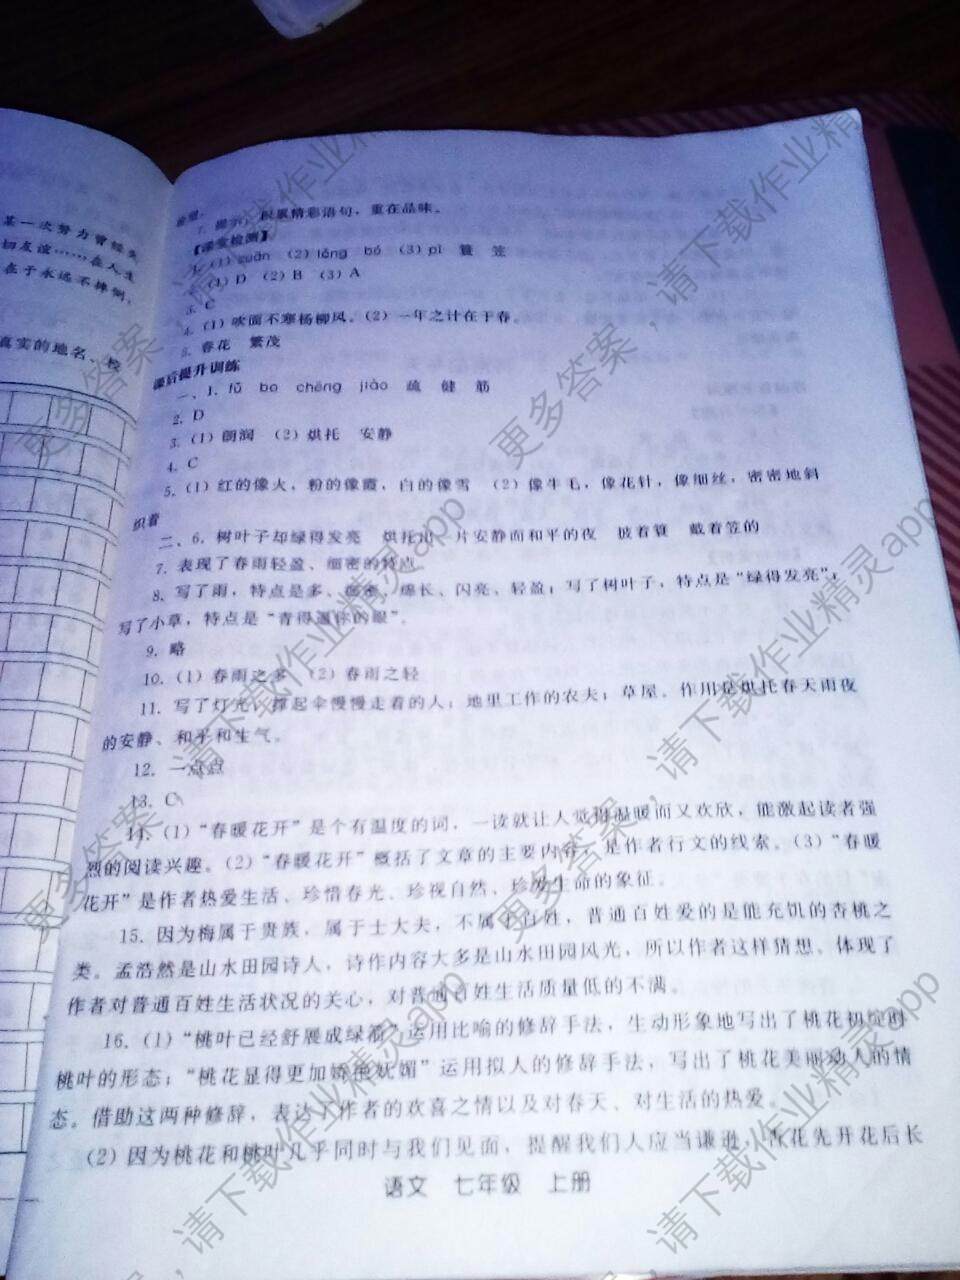 某一次努力曾经失
切友谊……在人生
在于永远不摔倒，
真实的地名、校
7. 提示：积累精彩语句，重在品味。
【课堂检测】
1. (1) zuān (2) lǒng bó (3) pī 蓑 笠
(1) D (2) B (3) A
3. C
4. (1) 吹面不寒杨柳风。(2) 一年之计在于春。
5. 春花 繁茂
课后提升训练
一、1. fǔ bo chéng jiào 疏 健 筋
2. D
3. (1) 朗润 (2) 烘托 安静
4. C
5. (1) 红的像火，粉的像霞，白的像雪 (2) 像牛毛，像花针，像细丝，密密地斜
织着
二、6. 树叶子却绿得发亮 烘托出一片安静而和平的夜 披着蓑 戴着笠的
7. 表现了春雨轻盈、细密的特点
8. 写了雨，特点是多、细密、绵长、闪亮、轻盈；写了树叶子，特点是“绿得发亮”；
写了小草，特点是“青得逼你的眼”。
9. 略
10. (1) 春雨之多 (2) 春雨之轻
11. 写了灯光；撑起伞慢慢走着的人；地里工作的农夫；草屋。作用是烘托春天雨夜
的安静、和平和生气。
12. 一点点
13. C
14. (1) “春暖花开”是个有温度的词，一读就让人觉得温暖而又欢欣，能激起读者强
烈的阅读兴趣。(2) “春暖花开”概括了文章的主要内容，是作者行文的线索。(3) “春暖
花开”是作者热爱生活、珍惜春光、珍视自然、珍爱生命的象征。
15. 因为梅属于贵族，属于士大夫，不属于百姓，普通百姓爱的是能充饥的杏桃之
类。孟浩然是山水田园诗人，诗作内容大多是山水田园风光，所以作者这样猜想。体现了
作者对普通百姓生活状况的关心，对普通百姓生活质量低的不满。
16. (1) “桃叶已经舒展成绿翁”运用比喻的修辞手法，生动形象地写出了桃花初绽时
桃叶的形态；“桃花显得更加娇羞妩媚”运用拟人的修辞手法，写出了桃花美丽动人的情
态。借助这两种修辞，表达了作者的欢喜之情以及对春天、对生活的热爱。
(2) 因为桃花和桃叶几乎同时与我们见面，提醒我们人应当谦逊，杏花先开花后长
语文 七年级 上册
请下载作业精灵app
更多答案，
请下载作业精灵app
更多答案，
请下载作业精灵app
更多答案，
请下载作业精灵app
更多答案，
请下载作业精灵app